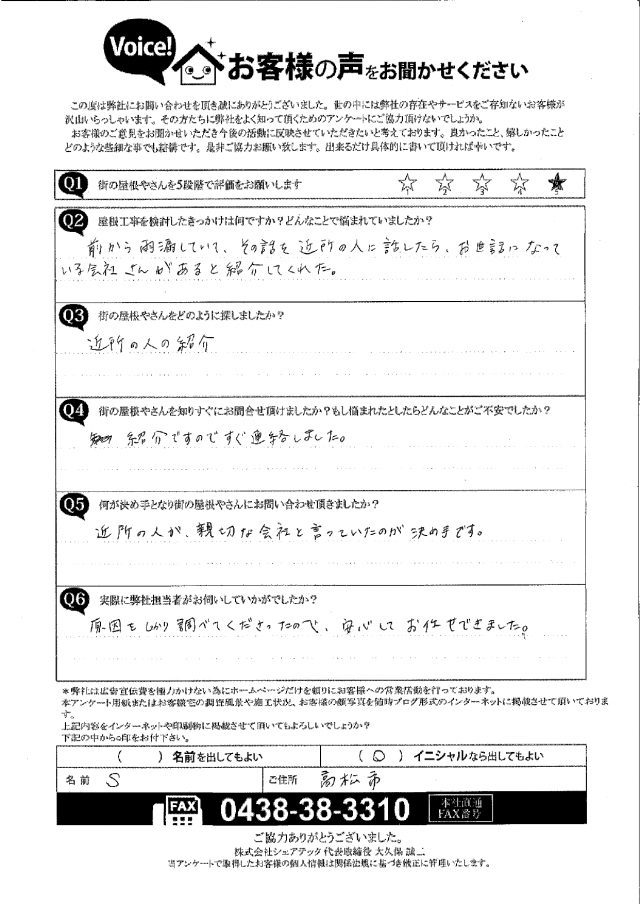 Voice!
お客様の声をお聞かせください
この度は弊社にお問い合わせを頂き誠にありがとうございました。世の中には弊社の存在やサービスをご存知ないお客様が
沢山いらっしゃいます。その方たちに弊社をよく知って頂くためのアンケートにご協力頂けないでしょうか。
お客様のご意見をお聞かせいただき今後の活動に反映させていただきたいと考えております。良かったこと、嬉しかったこと
どのような些細な事でも結構です。是非ご協力お願い致します。出来るだけ具体的に書いて頂ければ幸いです。
Q1 街の屋根やさんを5段階で評価をお願いします
1 2 3 4 5
Q2 屋根工事を検討したきっかけは何ですか？どんなことで悩まれていましたか？
前から雨漏していて、その話を近所の人に話したら、お世話になって
いる会社さんがあると紹介してくれた。
Q3 街の屋根やさんをどのように探しましたか？
近所の人の紹介
Q4 街の屋根やさんを知りすぐにお問合せ頂けましたか？もし悩まれたとしたらどんなことがご不安でしたか？
紹介ですのですぐ連絡しました。
Q5 何が決め手となり街の屋根やさんにお問い合わせ頂きましたか？
近所の人が、親切な会社と言っていたのが決め手です。
Q6 実際に弊社担当者がお伺いしていかがでしたか？
原因をしっかり調べてくださったので、安心してお任せできました。
＊弊社は広告宣伝費を極力かけない為にホームページだけを頼りにお客様への営業活動を行っております。
本アンケート用紙またはお客様宅の調査風景や施工状況、お客様の顔写真を随時ブログ形式のインターネットに掲載させて頂いておりま
す。
上記内容をインターネットや印刷物に掲載させて頂いてもよろしいでしょうか？
下記の中から○印をお付け下さい。
（　）名前を出してもよい （○）イニシャルなら出してもよい
名前 S ご住所 高松市
FAX 0438-38-3310 本社直通
FAX番号
ご協力ありがとうございました。
株式会社シェアテック 代表取締役 大久保 誠二
当アンケートで取得したお客様の個人情報は関係法規に基づき厳正に管理いたします。